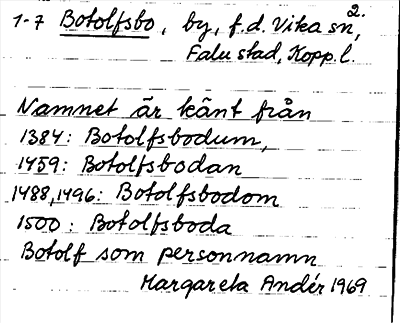 1-7 Botolfsbo, by, f.d. Vika sn², 
Falu stad, Kopp.l.
Namnet är känt från
1384: Botolfsbodum,
1459: Botolfsbodan
1488, 1496: Botolfsbodom
1500: Botolfsboda
Botolf som personnamn
Margareta Andér 1969